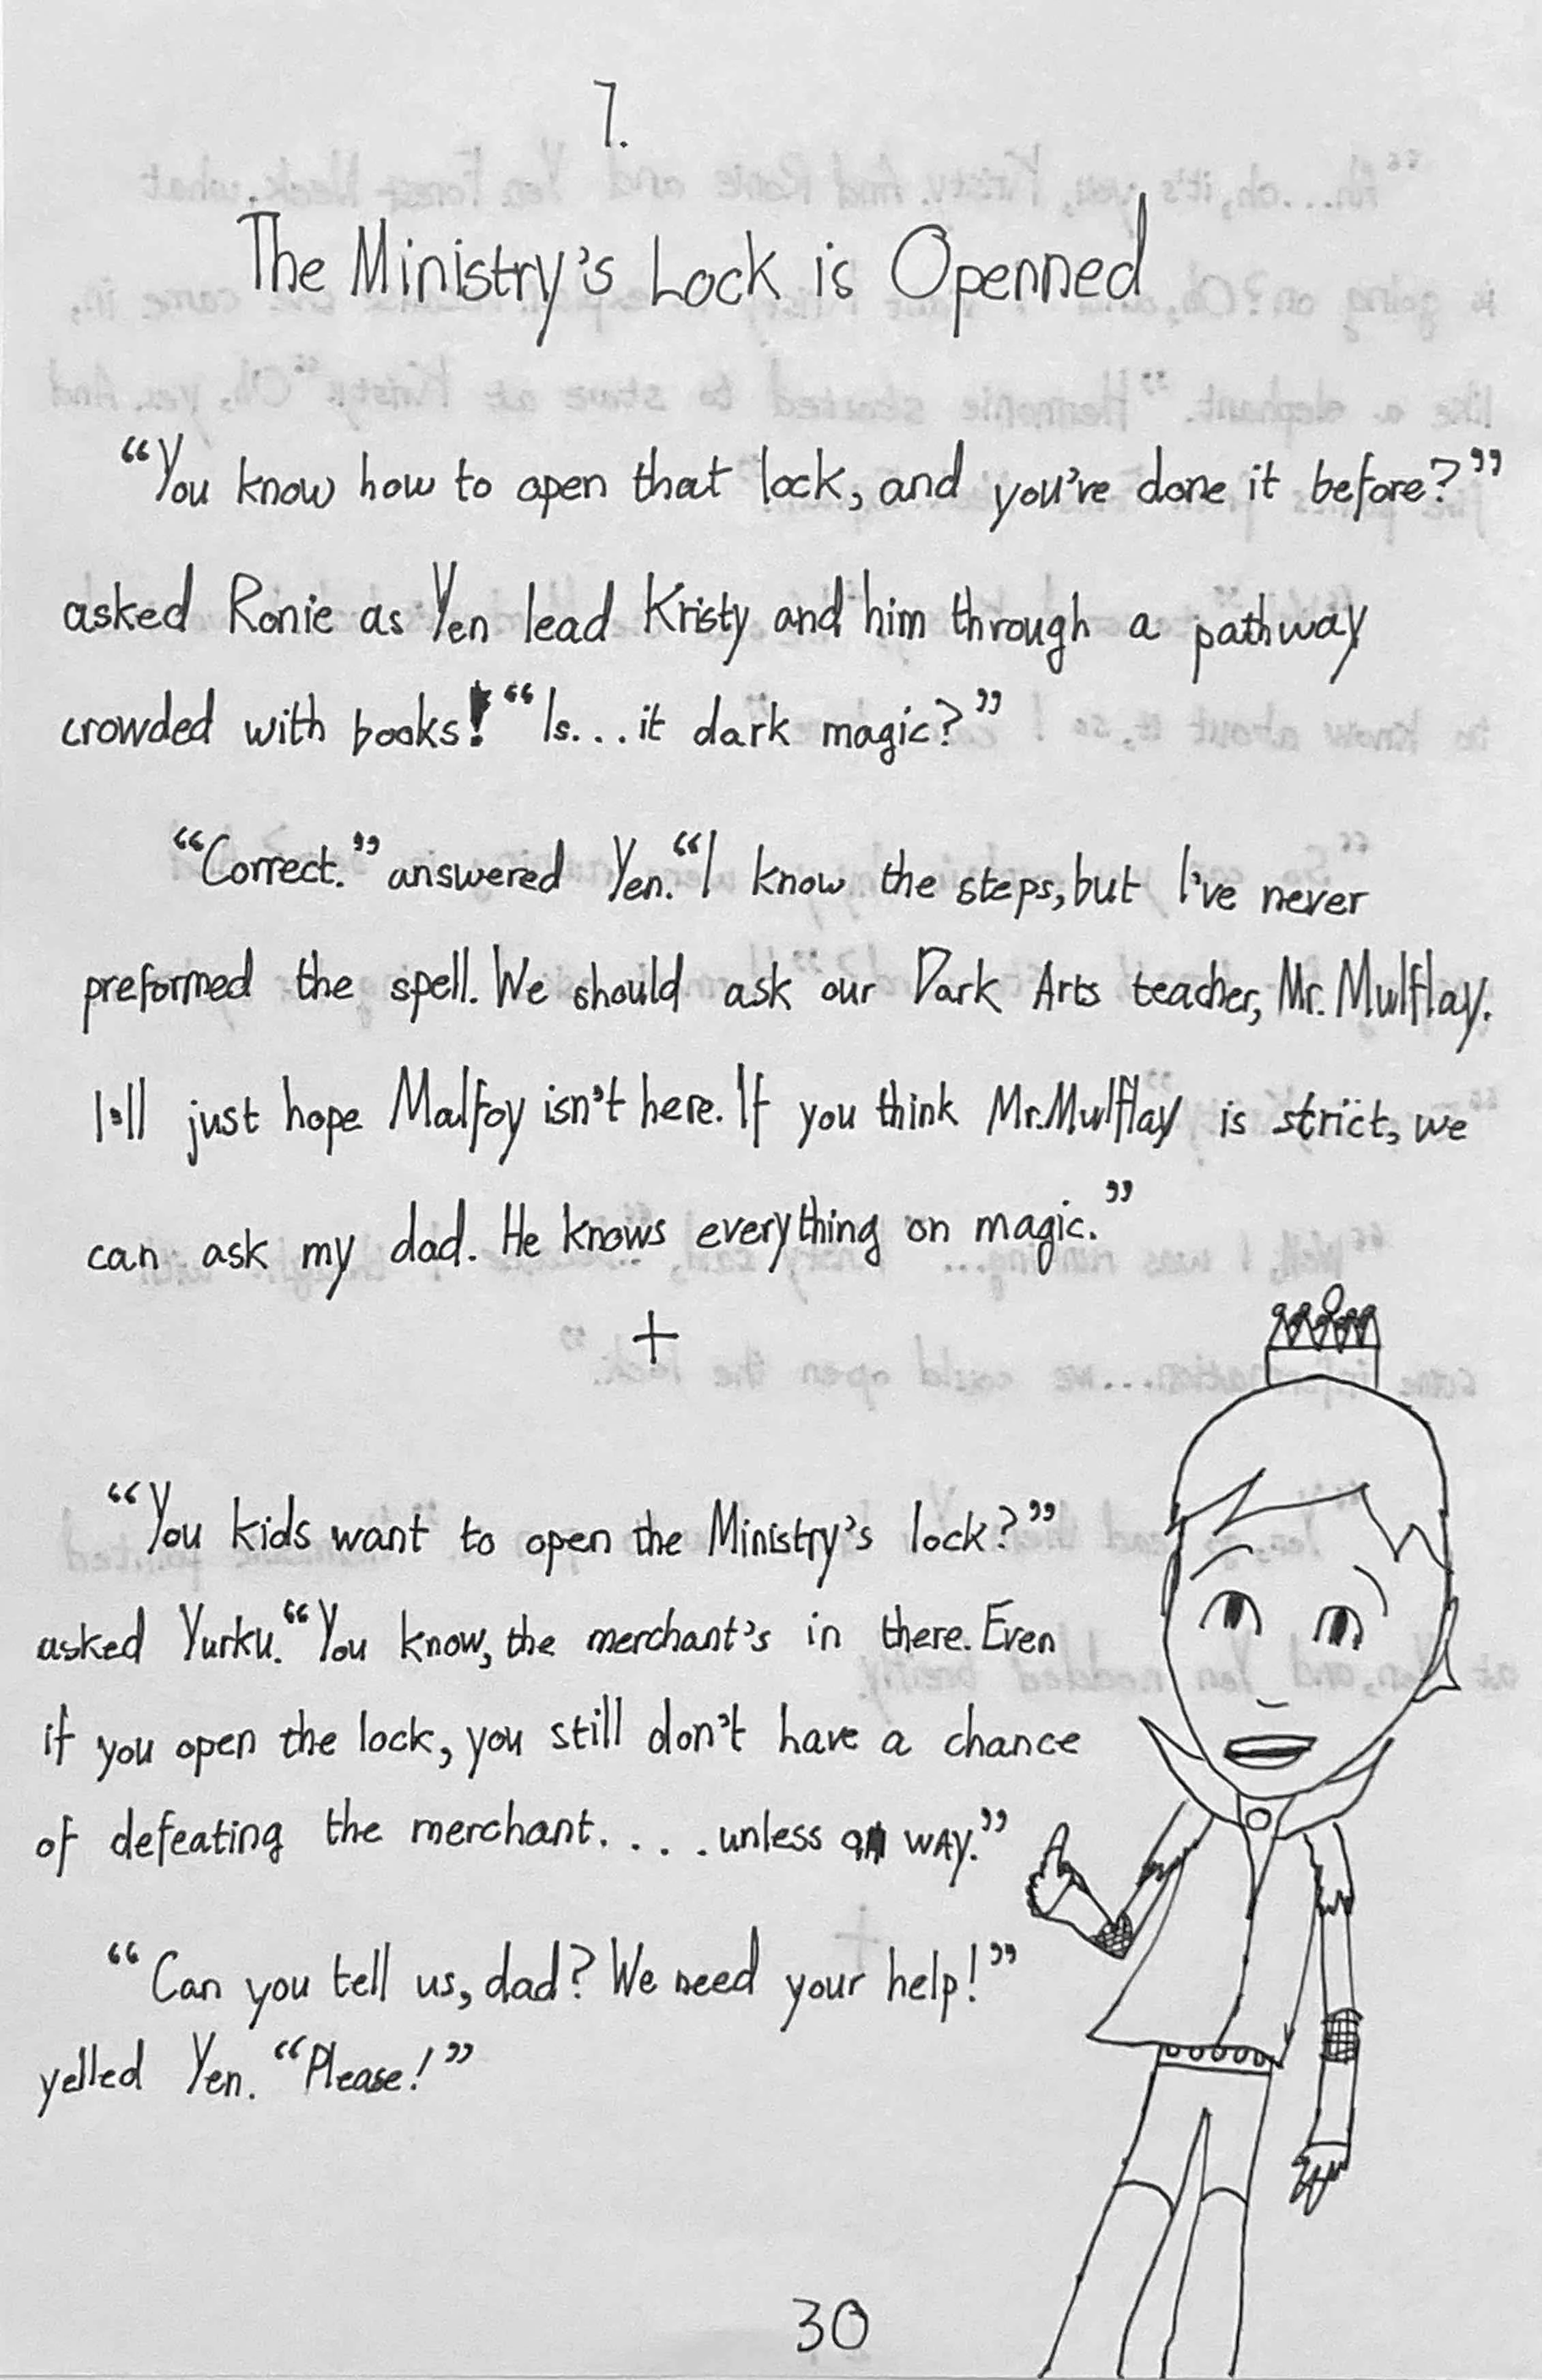 7.
The Ministry's Lock is Openned
“You know how to open that lock, and you've done it before?”
asked Ronie as Yen lead Kristy and him through a pathway
crowded with books! “Is...it dark magic?”
“Correct.” answered Yen. “I know the steps, but I've never
preformed the spell. We should ask our Dark Arts teacher, Mr. Mulflay.
I'll just hope Malfoy isn't here. If you think Mr. Mulflay is strict, we
can ask my dad. He knows everything on magic.”
+
“You kids want to open the Ministry's lock?”
asked Yurku. “You know, the merchant's in there. Even
if you open the lock, you still don't have a chance
of defeating the merchant. . . . unless way.”
“Can you tell us, dad? We need your help!”
yelled Yen. “Please!”
30